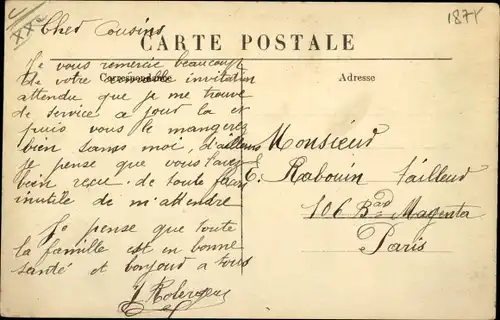 XXe
187Y
Cher Cousins
CARTE POSTALE
Correspondance
Adresse
Je vous remercie beaucoup
de votre invitation
attendu que je me trouve
de service a jour la et
puis vous le mangerez
bien sans moi, d'ailleurs
je pense que vous l'avez
bien reçue, de toute facon
inutile de m'attendre
Je pense que toute
la famille est en bonne
santé et bonjour a tous
Monsieur
E. Rabouin tailleur
106 Bad Magenta
Paris